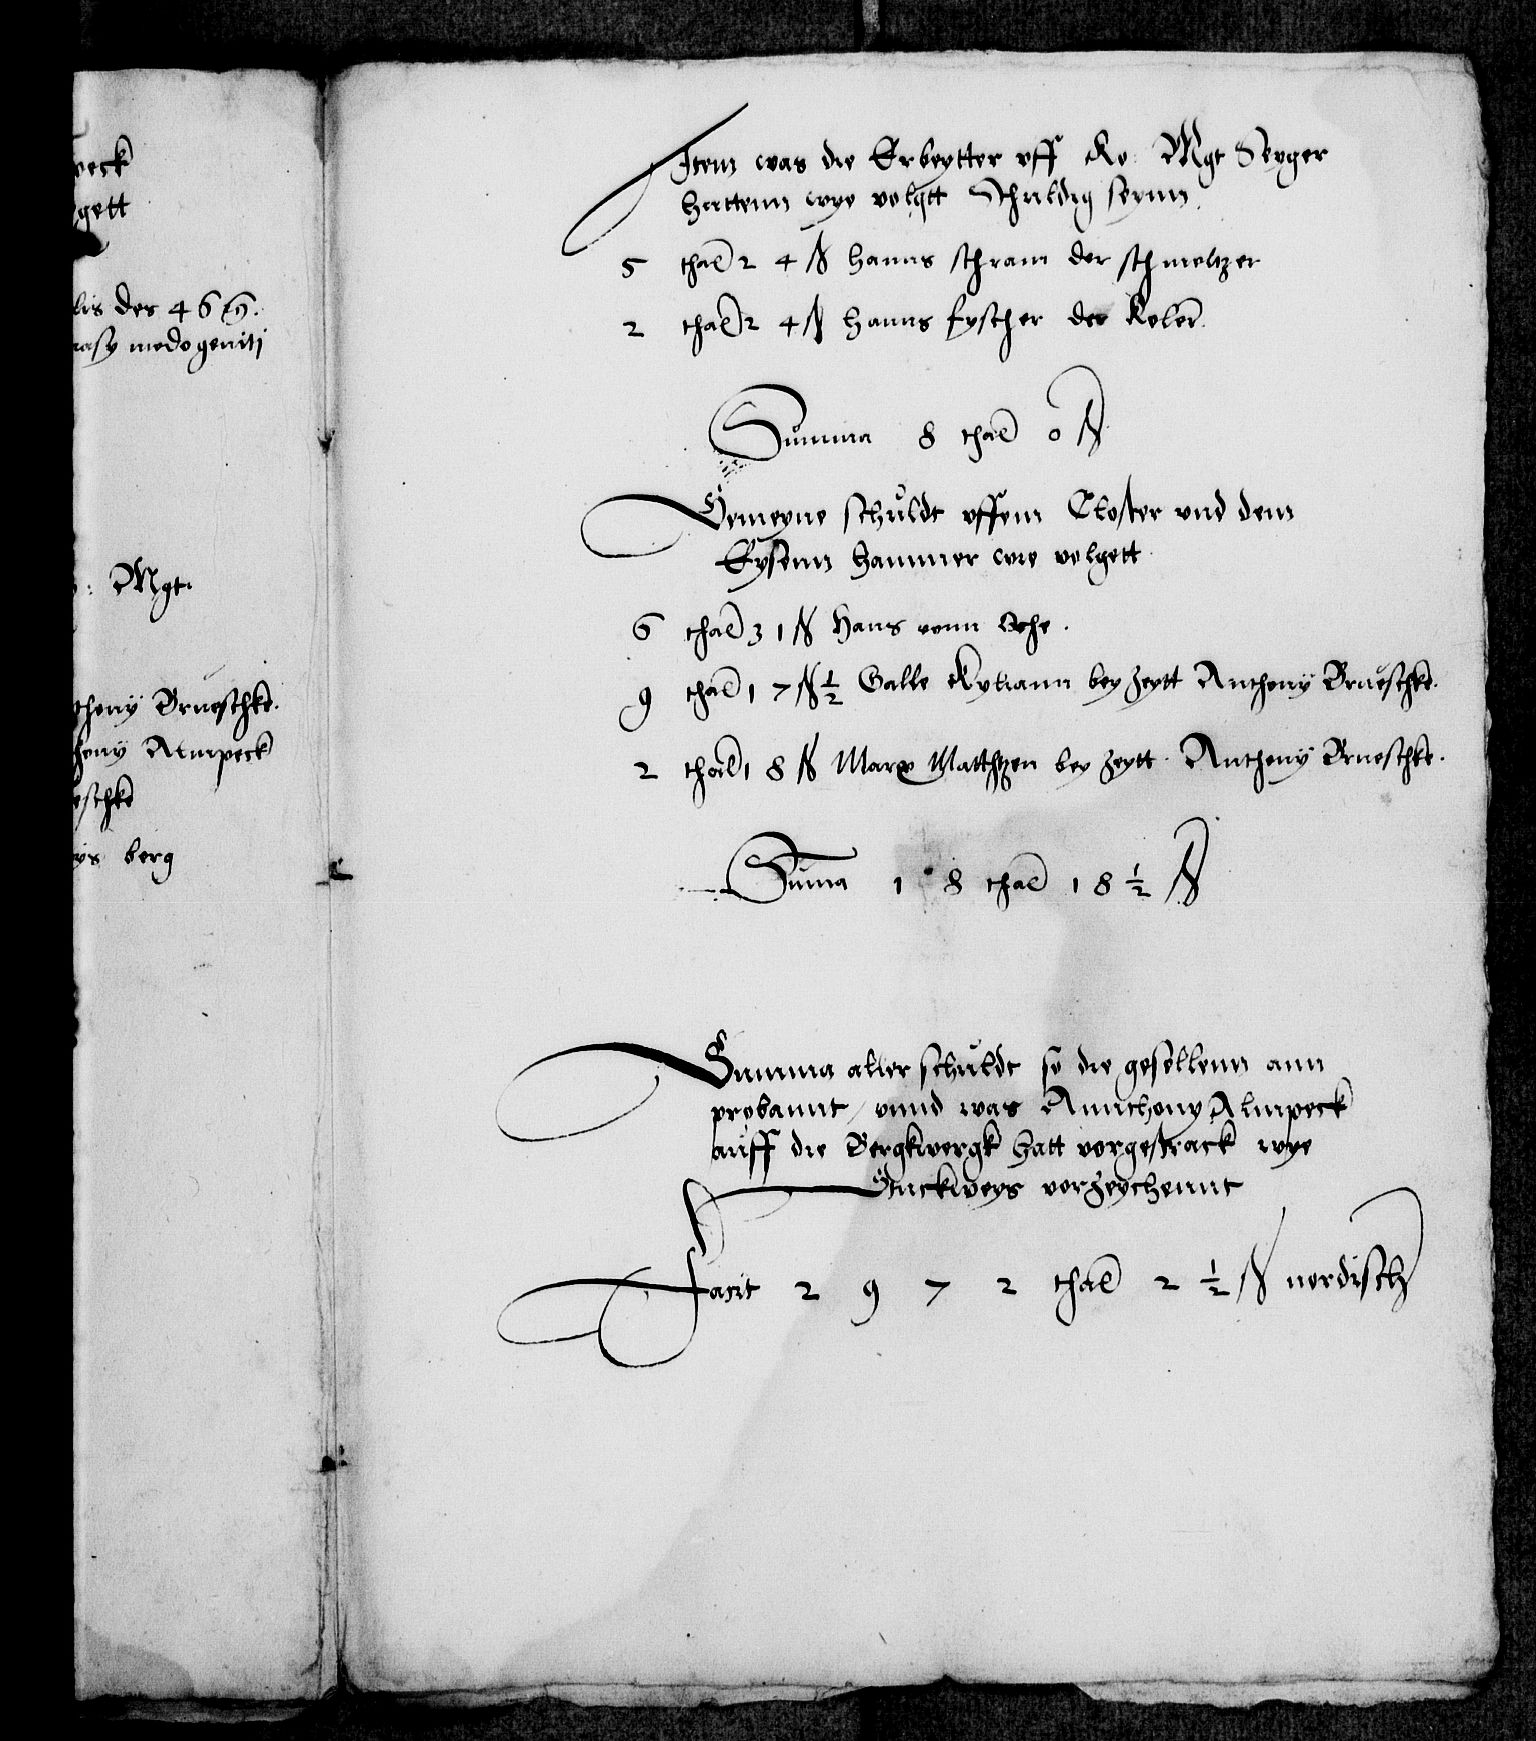 peck
lgett
lis des 46
nasy modogeniti
: Mgt.
thony Brueschke.
hony Almpeck
eschke
ys berg
Item was die Erbeytter vff Ko: Mgt Seyger
huttenn wye volgtt Schuldig seynn.
5 thal 24 ß hanns schram der schmeltzer
2 thal 24 ß hanns fyscher der Koler.
Summa 8 thal 0 ß
Gemeyne schuldt vffem Closter vnd dem
Eysenn hammer wie volgett.
6 thal 31 ß Hans vonn Ache.
9 thal 17 ß ½ Galle Kyliann bey zeytt Anthony Brueschke.
2 thal 18 ß Marx Matthtzen bey zeytt Anthony Brueschke.
Suma 18 thal 18 ½ ß
Summa aller schuldt so die gesellenn ann
probannt / vnnd was Annthony Almpeck
auff die Bergkwergk hatt vorgestrack wye
Stuckweys vorzeychennt
Facit 2972 thal 2 ½ ß nordisch